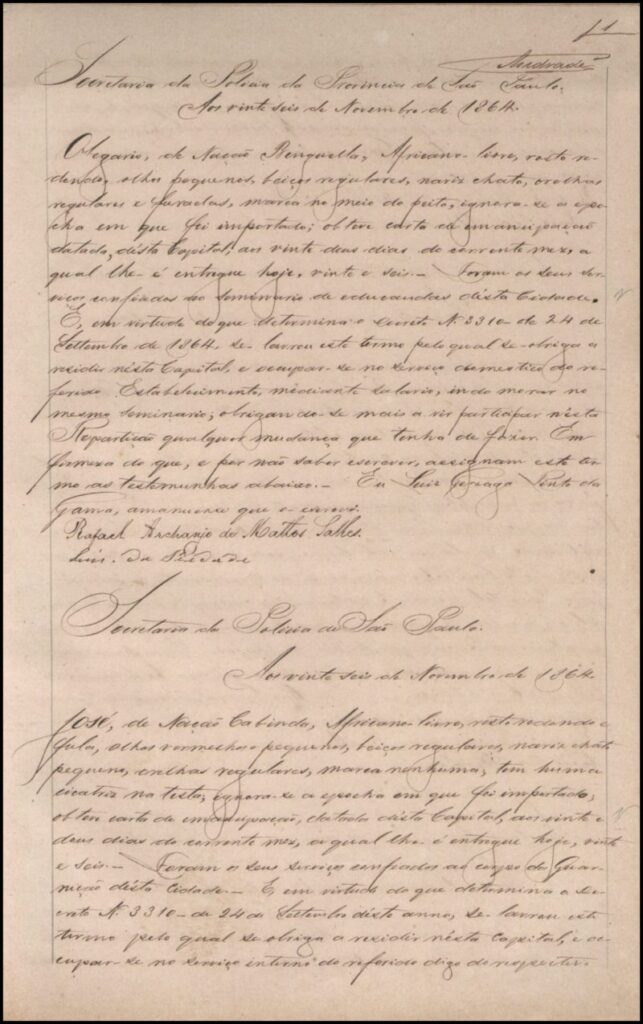 11
Andrade
Secretaria da Policia da Provincia de São Paulo.
Aos vinte seis de Novembro de 1864.
Olegario, de Nação Benguella, Africano livre, rosto re-
dondo, olhos pequenos, beiços regulares, nariz chato, orelhas
regulares e furadas, marca no meio do peito, ignora-se a epo-
cha em que foi importado; obteve carta de emancipação
datada, désta Capital, aos vinte deus dias do corrente mez, a
qual lhe é entregue hoje, vinte e seis.— Foram os seus ser-
viços confiados ao Seminario de educandas désta Cidade.
E, em virtude do que determina o Decreto N. 3310 de 24 de
Settembro de 1864, se lavrou este termo pelo qual se obriga a
residir nésta Capital, e occupar-se no serviço domestico do re-
ferido Estabelecimento, mediante salario, indo morar no
mesmo Seminario; obrigando-se mais a vir participar nésta
Repartição qualquer mudança que tenha de fazer. Em
firmeza do que, e por não saber escrever, assignam este ter-
mo as testimunhas abaixo.— Eu Luiz Gonzaga Pinto da
Gama, amanuense que o escrevi.
Rafael Archanjo de Mattos Salles.
Luis da Piedade
Secretaria da Policia de São Paulo.
Aos vinte seis de Novembro de 1864.
José, de Nação Cabinda, Africano livre, rosto redondo e
fula, olhos vermelhos e pequenos, beiços regulares, nariz chato
pequeno, orelhas regulares, marca nenhuma, tem huma
cicatriz na testa, ignora-se a epocha em que foi importado;
obteve carta de emancipação, datada désta Capital, aos vinte e
deus dias do corrente mez, a qual lhe é entregue hoje, vinte
e seis.— Foram os seus serviços confiados ao corpo da Guar-
nição désta Cidade.— E, em virtude do que determina o De-
creto N. 3310 de 24 de Settembro déste anno, se lavrou este
termo pelo qual se obriga a residir nésta Capital, e oc-
cupar-se no serviço interno do referido digo do respecti-